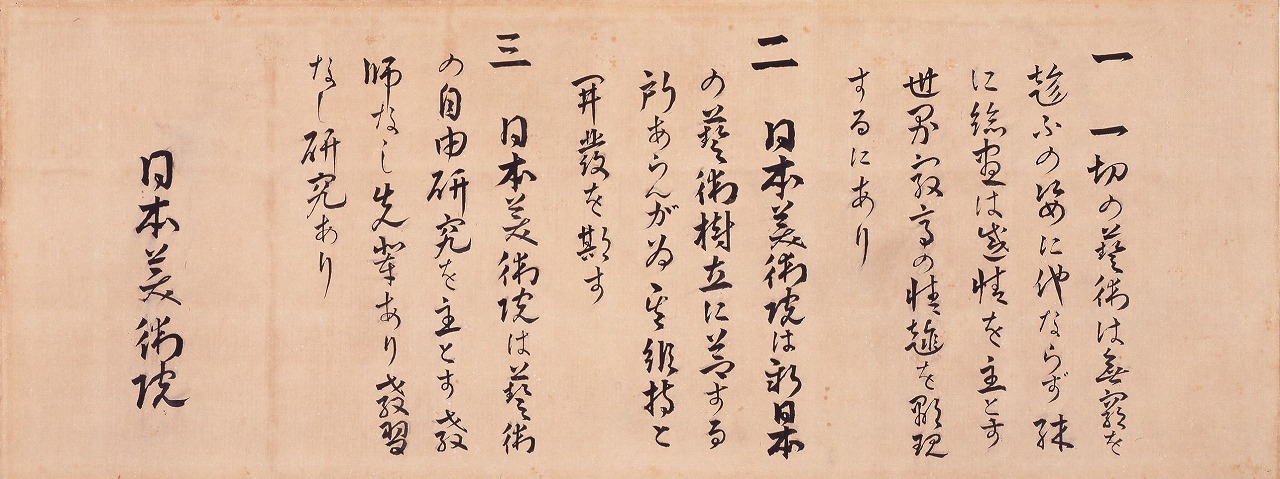 一 一切の藝術は無窮を
趁ふの姿に他ならず殊
に絵画は感情を主とす
世界最高の情趣を顕現
するにあり
二 日本美術院は新日本
の藝術樹立に益する
所あらんが為其維持と
開發を期す
三 日本美術院は藝術
の自由研究を主とす教
師なし先輩あり教習
なし研究あり
日本美術院